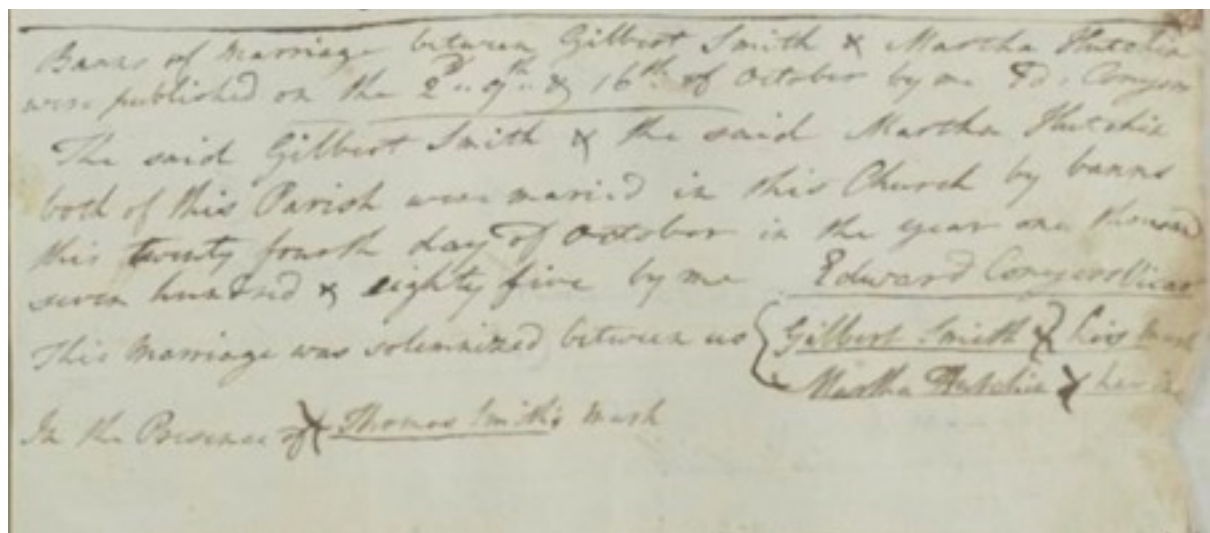 Banns of Marriage between Gilbert Smith & Martha Hutchin
were published on the 2d.. 9th.. & 16th.. of October by me Ed. Conyers
The said Gilbert Smith & the said Martha Hutchin
both of this Parish were maried in this Church by banns
this twenty fourth day of October in the year one thousand
seven hundred & eighty five by me Edward Conyers Vicar
This Marriage was solemnized between us { Gilbert Smith X his mark
Martha Hutchin X her
In the Presence of X Thomas Smith's mark